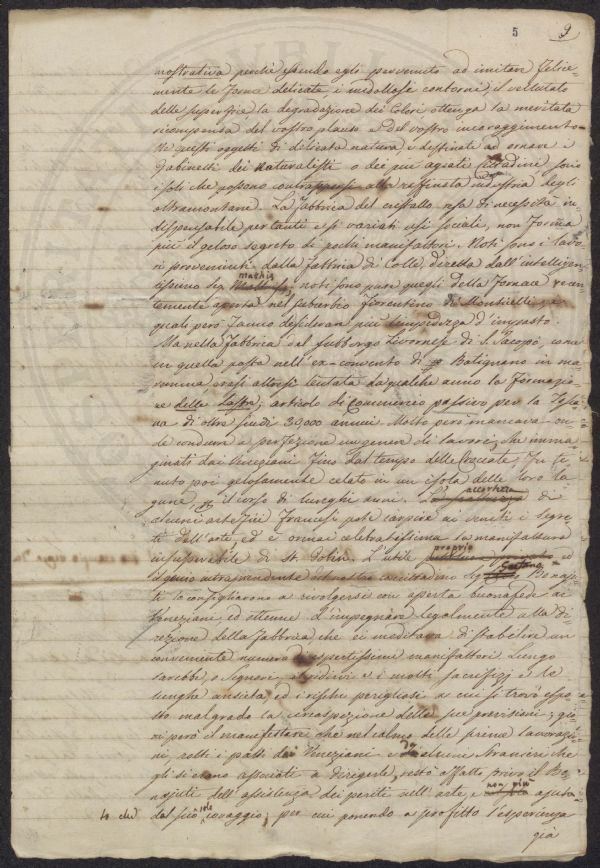 5 9
mostrativa perchè essendo egli pervenuto ad imitar felice-
mente le forme delicate, i midollosi contorni, il vellutato
delle superficie la degradazione dei Colori ottenga la meritata
ricompensa del vostro plauso e del vostro incoraggimento
Se questi oggetti di delicata natura e destinati ad ornare i
Gabinetti dei Naturalisti o dei più agiati Cittadini, sono
i soli che possono contrapporsi alla raffinata industria degli
oltramontani. La fabbrica del cristallo resa di necessità in-
dispensabile per tanti e sì variati usi sociali, non forma
più il geloso segreto di pochi manifattori. Noti sono i lavo-
ri provenienti dalla fattoria di Colle, diretta dall'intelligen-
tissimo Sig. Mathis
noti sono pure quegli della Fornace recen-
temente aperta nel suburbio Fiorentino di Monticelli, i
quali però fanno desiderar più limpidezza d'impasto.
Ma nella fabbrica del subborgo Livornese di S. Jacopo, come
in quella posta nell'ex-convento di Batignano in ma-
remma erasi altresì tentata da qualche anno la formazio-
ne delle lastre; articolo di commercio passivo per la Tosca-
na di oltre scudi 30,000 annui. Molto però mancava on-
de condurre a perfezione un genere di lavori, che imma-
ginati dai Veneziani fino dal tempo delle Crociate, fu te-
nuto poi gelosamente celato in un'isola delle loro la-
gune, il corso di lunghi anni. L'accortezza di
alcuni artefici Francesi potè carpire ai veneti i segre-
ti dell'arte, ed è ormai celebratissima la manifattura
di St. Gobin. L'utile proprio ed
il genio intraprendente del nostro concittadino Sig. Gaetano Bona-
ti lo consigliarono a rivolgersi con aperta buonafede ai
Veneziani, ed ottenne d'impegnare legalmente alla di-
rezione della fabbrica che ei meditava di stabilire un
conveniente numero di espertissimi manifattori. Lungo
sarebbe, o Signori, il ridirvi e i molti sacrifizj e le
lunghe ansietà, ed i rischi perigliosi a cui si trovò espo-
sto malgrado la circospezione delle sue previsioni; gio-
vi però il manifestare che nel colmo delle prime lavorazio-
ni, rotti i patti dai Veneziani e da alcuni stranieri che
gli si erano associati a dirigerle, restò affatto privo il Bo-
najuti dell'assistenza dei periti nell'arte, e non più ajuta-
to che dal suo solo coraggio; per cui ponendo a profitto l'esperienza
già